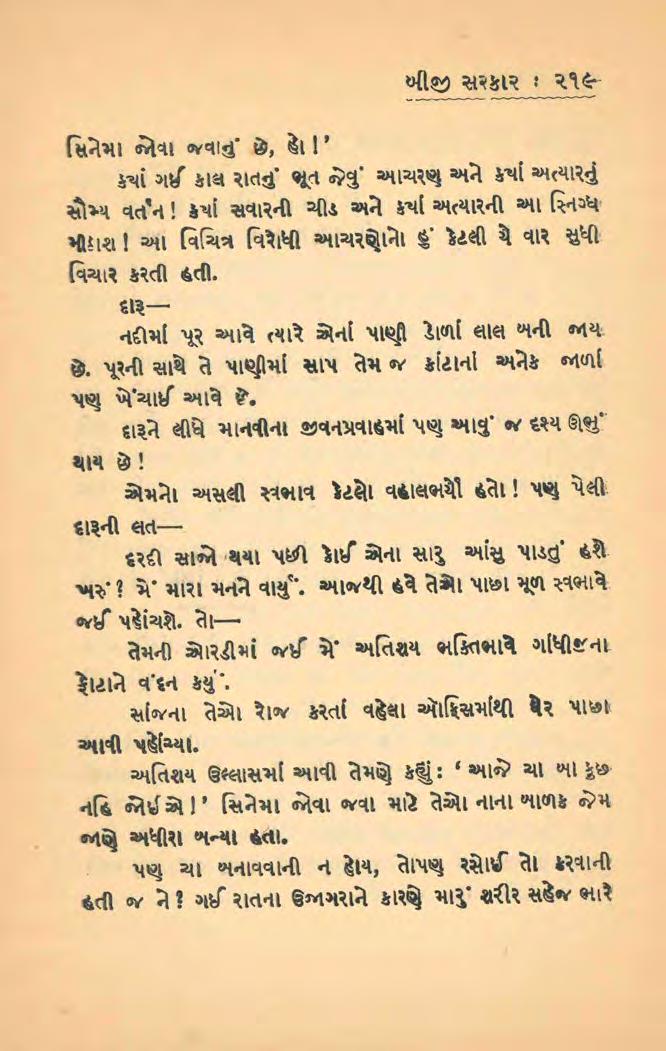 બીજી સરકાર : ૨૧૯
સિનેમા જોવા જવાનું છે, હો !’
કયાં ગઈ કાલ રાતનું ભૂત જેવું આચરણ અને કયાં અત્યારનું
સૌમ્ય વર્તન ! કયાં સવારની ચીડ અને કયાં અત્યારની આ સ્નિગ્ધ
મીઠાશ ! આ વિચિત્ર વિરોધી આચરણોનો હું કેટલી યે વાર સુધી
વિચાર કરતી હતી.
દારૂ—
નદીમાં પૂર આવે ત્યારે એનાં પાણી ડોળાં લાલ બની જાય
છે. પૂરની સાથે તે પાણીમાં સાપ તેમ જ કાંટાનાં અનેક જાળાં
પણ ખેંચાઈ આવે છે.
દારૂને લીધે માનવીના જીવનપ્રવાહમાં પણ આવું જ દશ્ય ઊભું
થાય છે !
એમનો અસલી સ્વભાવ કેટલો વહાલભર્યો હતો ! પણ પેલી
દારૂની લત—
દરદી સાજો થયા પછી કોઈ એના સારુ આંસુ પાડતું હશે
ખરું ? મેં મારા મનને વાર્યું. આજથી હવે તેઓ પાછા મૂળ સ્વભાવે
જઈ પહોંચશે. તો—
તેમની ઓરડીમાં જઈ મેં અતિશય ભક્તિભાવે ગાંધીજીના
ફોટાને વંદન કર્યું.
સાંજના તેઓ રોજ કરતાં વહેલા ઑફિસમાંથી ઘેર પાછા
આવી પહોંચ્યા.
અતિશય ઉલ્લાસમાં આવી તેમણે કહ્યું : ‘ આજે ચા બા કુછ
નહિ જોઈએ !’ સિનેમા જોવા જવા માટે તેઓ નાના બાળક જેમ
જાણે અધીરા બન્યા હતા.
પણ ચા બનાવવાની ન હોય, તોપણ રસોઈ તો કરવાની
હતી જ ને ? ગઈ રાતના ઉજાગરાને કારણે મારું શરીર સહેજ ભારે